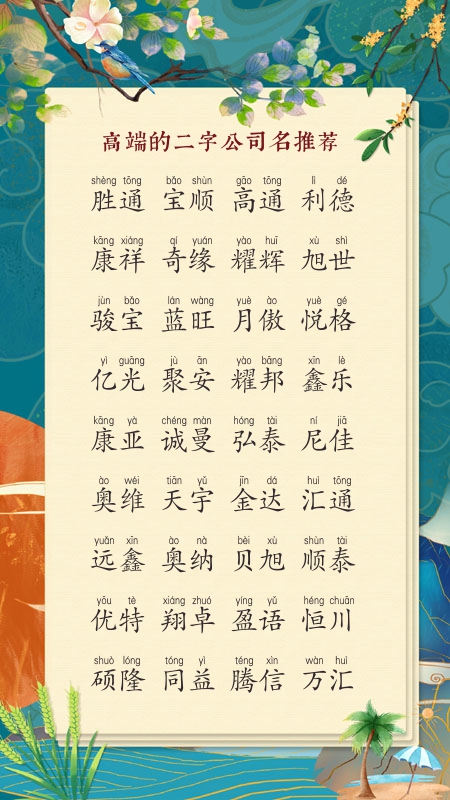 高端的二字公司名推荐
shèng tōng bǎo shùn gāo tōng lì dé
胜通 宝顺 高通 利德
kāng xiáng qí yuán yào huī xù shì
康祥 奇缘 耀辉 旭世
jùn bǎo lán wàng yuè ào yuè gé
骏宝 蓝旺 月傲 悦格
yì guāng jù ān yào bāng xīn lè
亿光 聚安 耀邦 鑫乐
kāng yà chéng màn hóng tài ní jiā
康亚 诚曼 弘泰 尼佳
ào wéi tiān yǔ jīn dá huì tōng
奥维 天宇 金达 汇通
yuǎn xīn ào nà bèi xù shùn tài
远鑫 奥纳 贝旭 顺泰
yōu tè xiáng zhuó yíng yǔ héng chuān
优特 翔卓 盈语 恒川
shuò lóng tóng yì téng xìn wàn huì
硕隆 同益 腾信 万汇